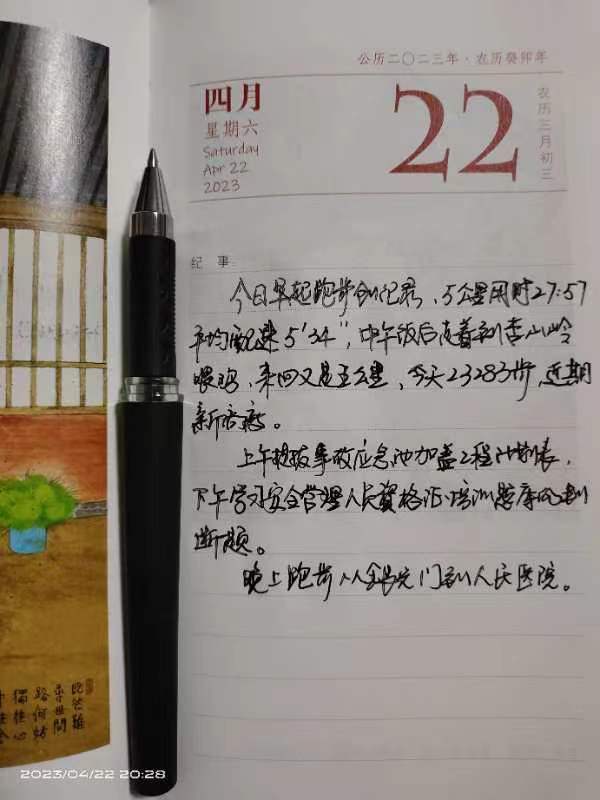 公历二〇二三年·农历癸卯年
四月
星期六
Saturday
Apr 22
2023
22
农历三月初三
纪 事
今日早起跑步创记录,5公里用时27:57
平均配速5'34",中午饭后走着到杏山岭
喂鸡,来回又是五公里,今天23283步,近期
新高度。
上午提报事故应急池加盖工程计划表,
下午学习安全管理人员资格证培训题库的判
断题。
晚上跑步从 门到人民医院。
2023/04/22 20:28